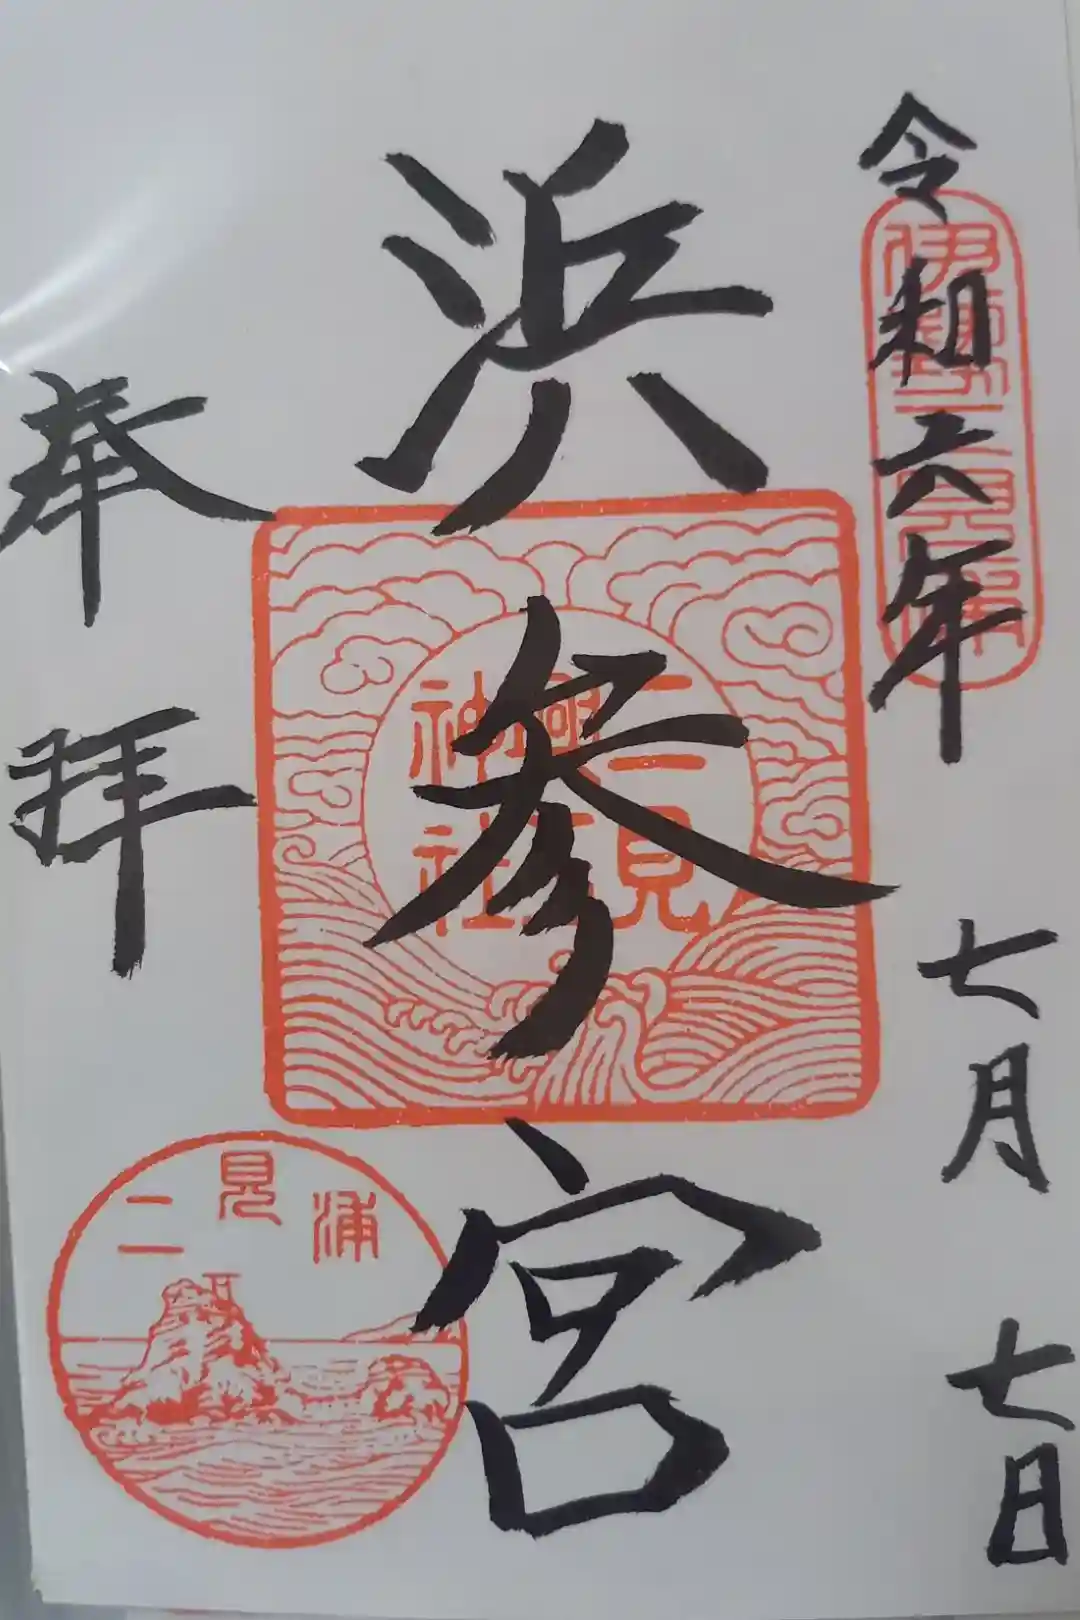 令和六年 七月 七日
伊勢二見浦
浜参宮
二見
興玉
神社
奉拝
二見浦